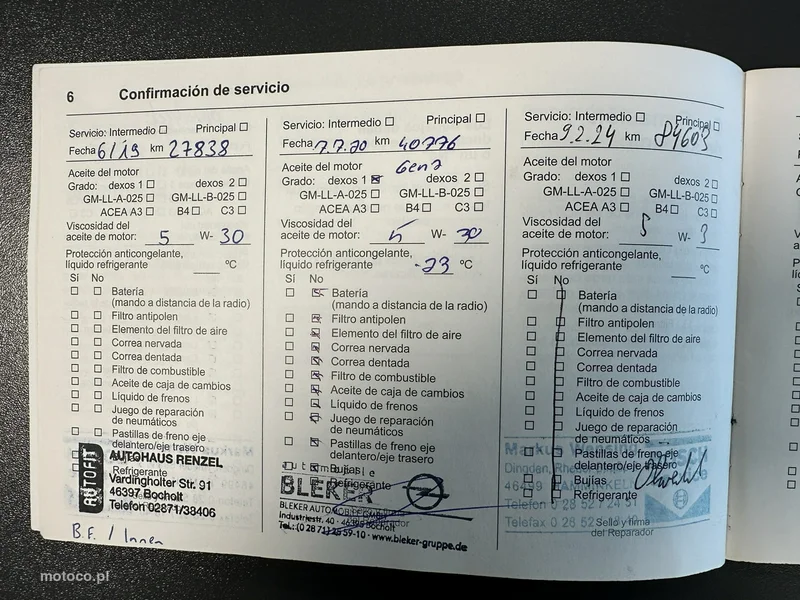 6 Confirmación de servicio
Servicio: Intermedio Principal
Fecha 6/19 km 27838
Aceite del motor
Grado: dexos 1 dexos 2
GM-LL-A-025 GM-LL-B-025
ACEA A3 B4 C3
Viscosidad del
aceite de motor: 5 W- 30
Protección anticongelante,
líquido refrigerante °C
Sí No
Batería
(mando a distancia de la radio)
Filtro antipolen
Elemento del filtro de aire
Correa nervada
Correa dentada
Filtro de combustible
Aceite de caja de cambios
Líquido de frenos
Juego de reparación
de neumáticos
Pastillas de freno eje
delantero/eje trasero
Refrigerante
AUTOFIT
AUTOHAUS RENZEL
Vardingholter Str. 91
46397 Bocholt
Telefon 02871/38406
B.F. / Innen
Servicio: Intermedio Principal
Fecha 7.7.20 km 40776
Aceite del motor Gen2
Grado: dexos 1 dexos 2
GM-LL-A-025 GM-LL-B-025
ACEA A3 B4 C3
Viscosidad del
aceite de motor: 5 W- 30
Protección anticongelante,
líquido refrigerante -23 °C
Sí No
Batería
(mando a distancia de la radio)
Filtro antipolen
Elemento del filtro de aire
Correa nervada
Correa dentada
Filtro de combustible
Aceite de caja de cambios
Líquido de frenos
Juego de reparación
de neumáticos
Pastillas de freno eje
delantero/eje trasero
Bujías
Refrigerante
BLEKER
BLEKER AUTOMOBILE GMBH
Industriestr. 40
www.bleker-gruppe.de
Servicio: Intermedio Principal
Fecha 9.2.24 km 84603
Aceite del motor
Grado: dexos 1 dexos 2
GM-LL-A-025 GM-LL-B-025
ACEA A3 B4 C3
Viscosidad del
aceite de motor: 5 W- 3
Protección anticongelante,
líquido refrigerante °C
Sí No
Batería
(mando a distancia de la radio)
Filtro antipolen
Elemento del filtro de aire
Correa nervada
Correa dentada
Filtro de combustible
Aceite de caja de cambios
Líquido de frenos
Juego de reparación
de neumáticos
Pastillas de freno eje
delantero/eje trasero
Bujías
Refrigerante
Sello y firma
del Reparador
motoco.pl